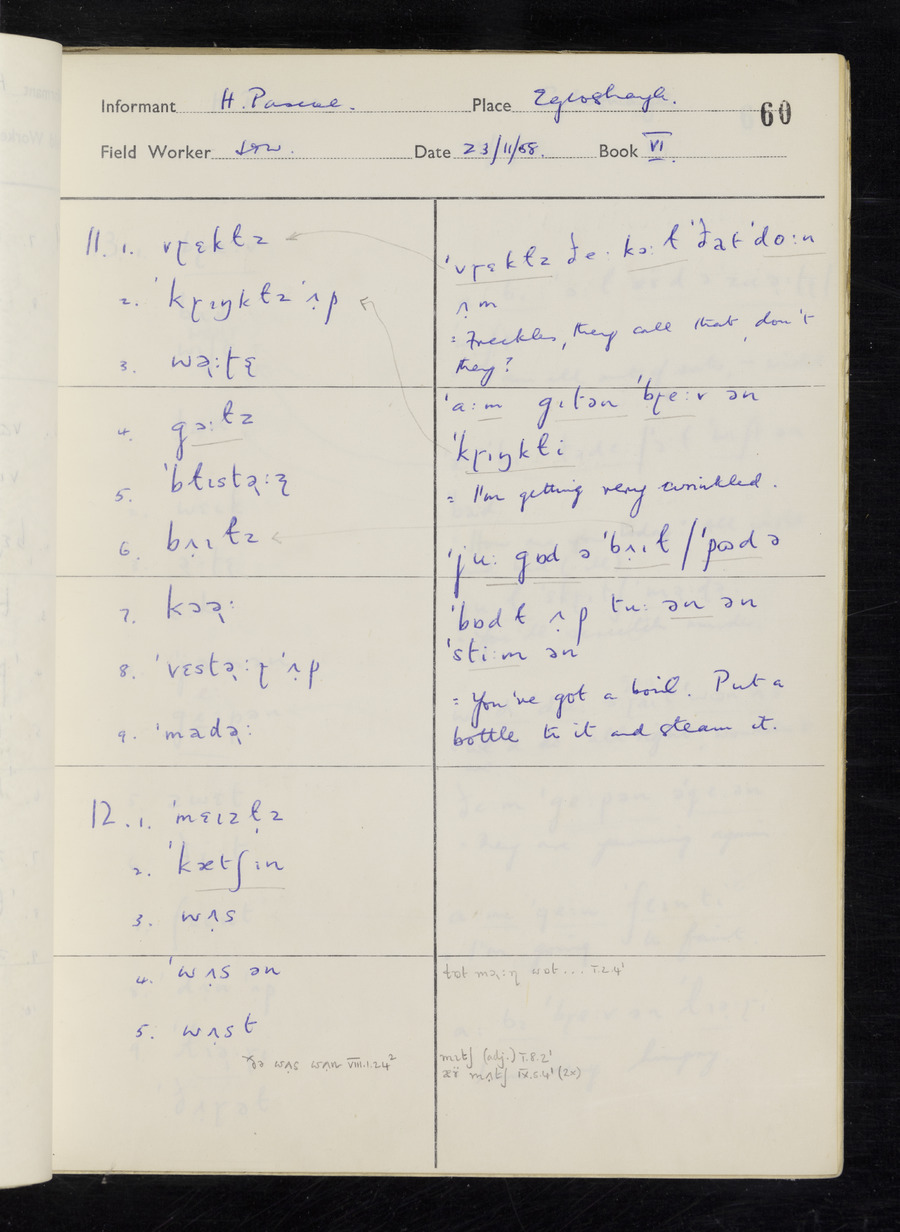 Informant H. Pascoe. Place Egloshayle. 60
Field Worker Date 23/11/ Book VI
11. 1. vɽɛkɫz
2. ˈkɽɪŋkɫz ˈʌ̣p
3. wəʴːʈʂ
4. gɔːɫz
5. ˈbɫɪstəʴːʐ
6. bʌ̣ɪɫz
7. kɔəʴː
8. ˈvɛstəʴːɽ ˈʌ̣p
9. ˈmadəʴː
12. 1. ˈmɛɪzɫ̩z
2. ˈkætʃɪn
3. wʌ̣s
4. ˈwʌ̣s ən
5. wʌ̣st
ðə wʌ̣s wʌn VIII.1.24²
ˈvɽɛkɫz ðeː kɔːɫ ˈðat ˈdoːn
ʌ̣m
= Freckles, they call that, don't
they?
ˈaːm gɪtən ˈbɽeːv ən
ˈkɽɪŋkɫi
= I'm getting very wrinkled.
ˈjuː gɒd ə ˈbʌ̣ɪɫ / ˈpʊd ə
ˈbɒdɫ ʌ̣p tuː ən ən
ˈstiːm ən
= You've got a boil. Put a
bottle to it and steam it.
mɪtʃ (adj.) V.8.2¹
mʌ̣tʃ IX.5.4¹ (2x)